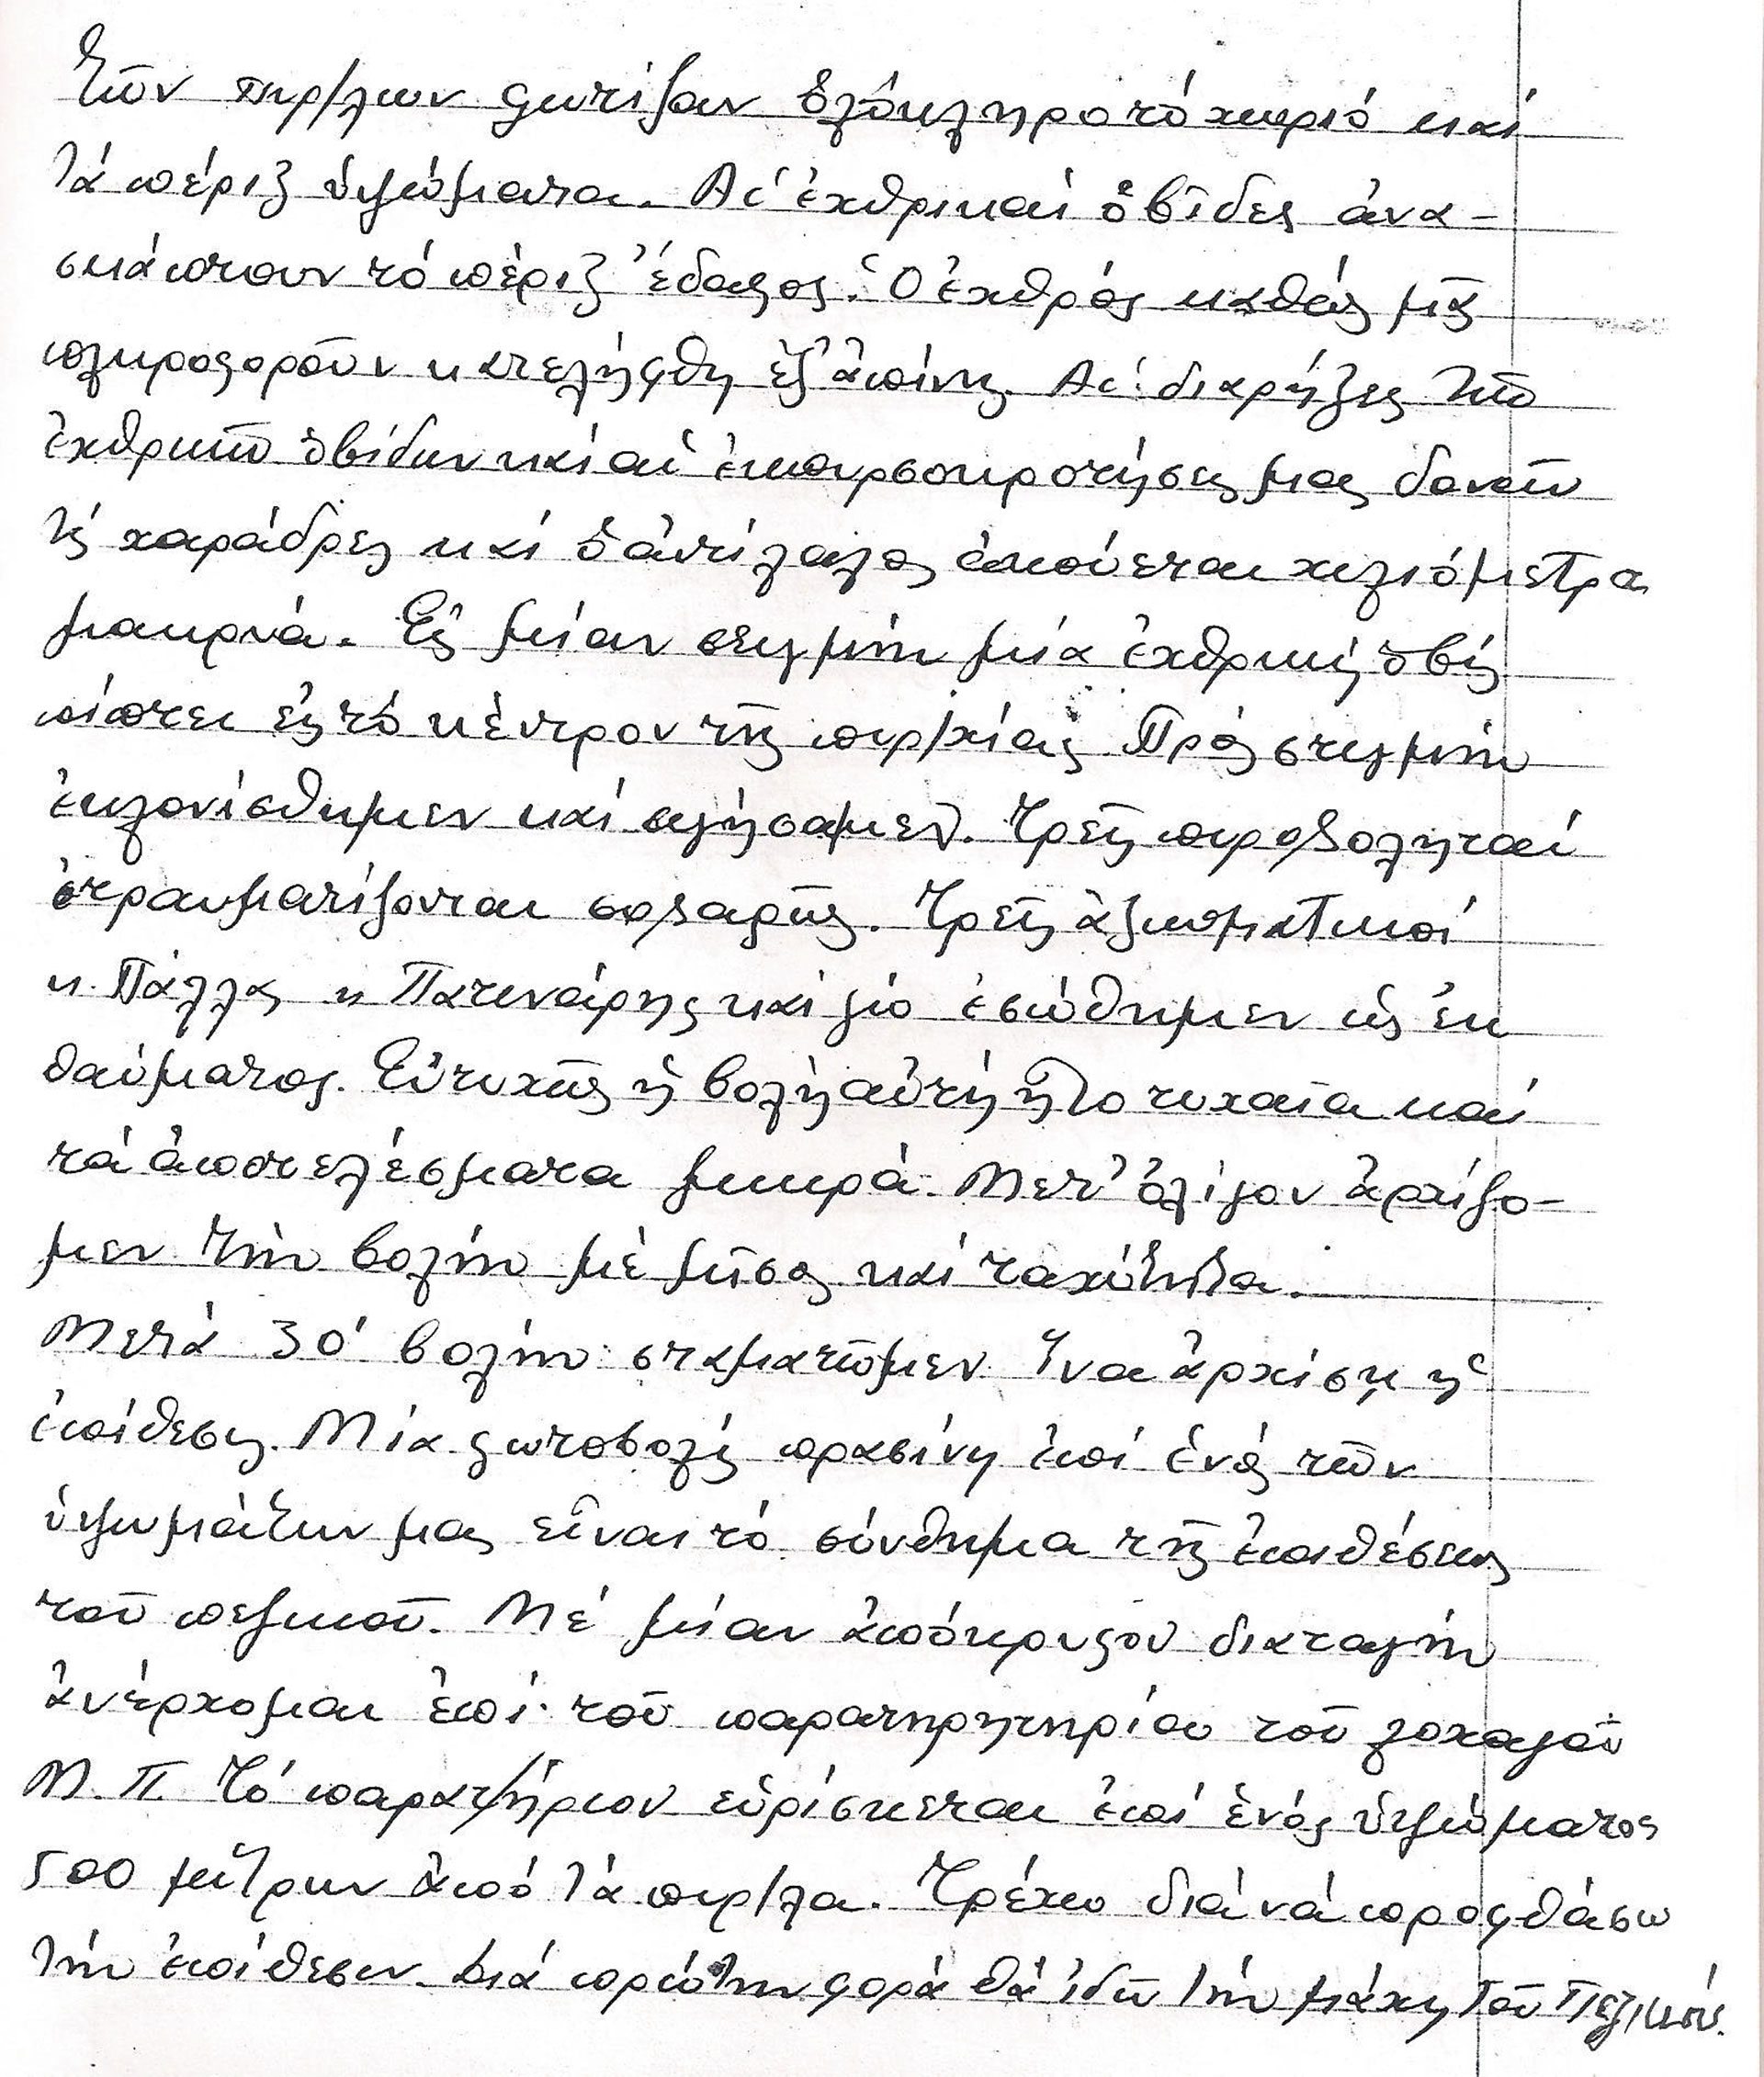 τῶν πυρ/λων φωτίζουν ὁλόκληρο τό χωριό καί
τά πέριξ ὑψώματα. Αἱ ἐχθρικαί ὀβίδες ἀνα-
σκάπτουν τό πέριξ ἔδαφος. Ὁ ἐχθρός καθώς μᾶς
πληροφοροῦν κατελήφθη ἐξ ἀπίνης. Αἱ διαρήξεις τῶν
ἐχθρικῶν ὀβίδων καί αἱ ἐκπυρσοκροτήσεις μας δονοῦν
τίς χαράδρες καί ὁ ἀντίλαλος ἀκούεται χιλιόμετρα
μακρυά. Εἰς μίαν στιγμήν μία ἐχθρική ὀβίς
πίπτει εἰς τό κέντρον τῆς πυρ/χίας. Πρός στιγμήν
ἐκλονίσθημεν καί σιγήσαμεν. Τρεῖς πυροβοληταί
ἐτραυματίζονται σοβαρῶς. Τρεῖς ἀξιωματικοί
κ. Πάλλας κ Πατινάρης καί γώ ἐσώθημεν ὡς ἐκ
θαύματος. Εὐτυχῶς ἡ βολή αὐτή ἦτο τυχαῖα καί
τά ἀποτελέσματα μικρά. Μετ' ὀλίγον ἀρχίζο-
μεν τήν βολήν μέ μῖσος καί ταχύτητα.
Μετά 30' βολήν σταματῶμεν ἵνα ἀρχίσῃ ἡ
ἐπίθεσις. Μία φωτοβολίς πρασίνη ἐπί ἑνός τῶν
ὑψωμάτων μας εἶναι τό σύνθημα τῆς ἐπιθέσεως
τοῦ πεζικοῦ. Μέ μίαν ἀπόκρυφον διαταγήν
ἀνέρχομαι ἐπί τοῦ παρατηρητηρίου τοῦ λοχαγοῦ
Μ. Π. Τό παρατ/τήριον εὑρίσκεται ἐπί ἑνός ὑψώματος
500 μέτρων ἀπό τά πυρ/λα. Τρέχω διά νά προφθάσω
τήν ἐπίθεσιν. Διά πρώτην φορά θά ἰδῶ τήν μάχην τοῦ Πεζικοῦ.